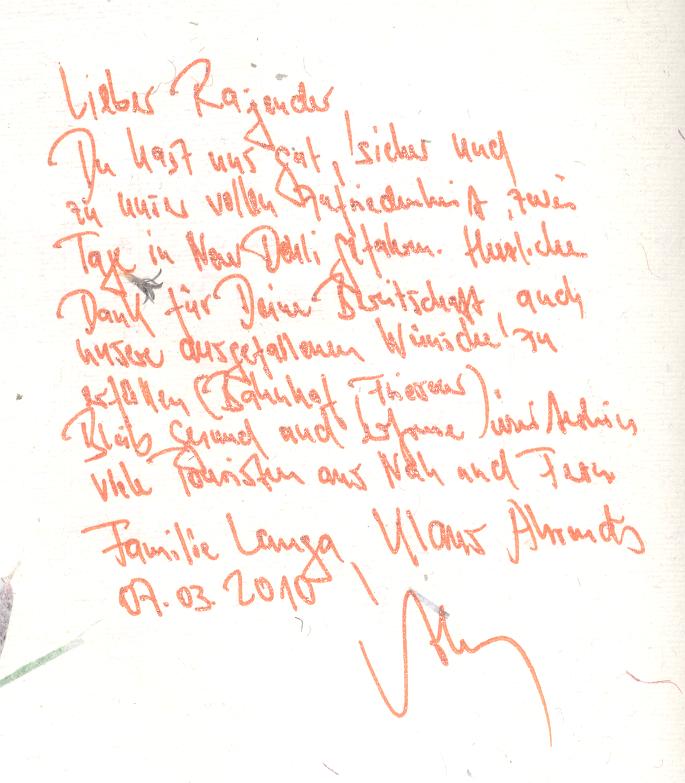 Lieber Rajender
Du hast uns gut, sicher und
zu unser vollen Zufriedenheit, zwei
Tage in New Dehli gefahren. Herzlichen
Dank für Deine Bereitschaft, auch
unsere ausgefallenen Wünsche zu
erfüllen (Bahnhof, Friseur)
Bleib gesund und
viele Touristen aus Nah und Fern
Familie Langa, Klaus Ahrends
07.03.2010